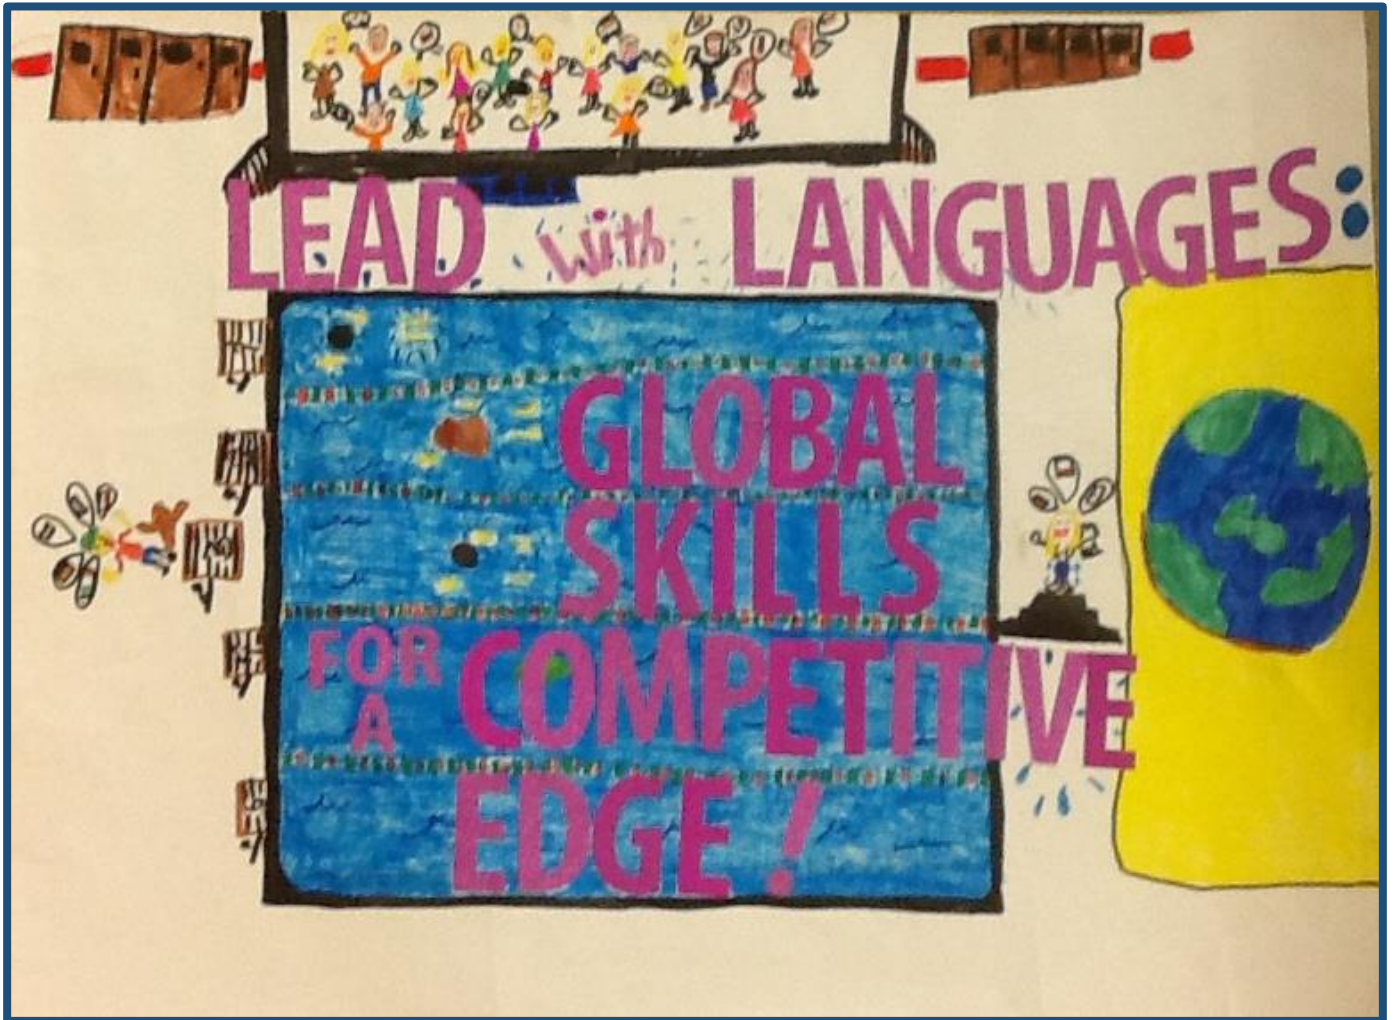 LEAD with LANGUAGES:
GLOBAL
SKILLS
FOR A COMPETITIVE
EDGE!